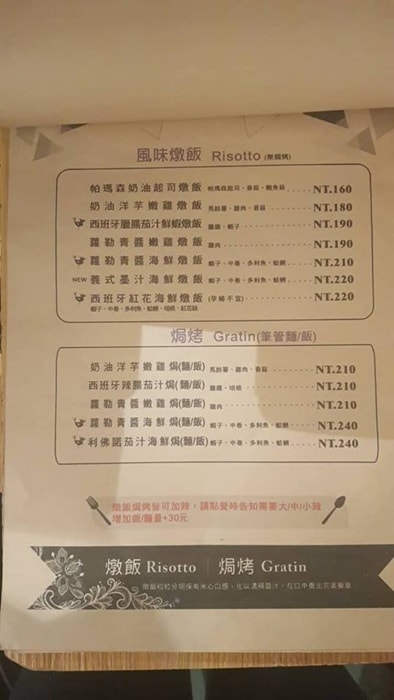 風味燉飯 Risotto (無焗烤)
帕瑪森奶油起司燉飯 帕瑪森起司、香菇、鮑魚菇 ..... NT.160
奶油洋芋嫩雞燉飯 馬鈴薯、雞肉、香菇 ......... NT.180
西班牙臘腸茄汁鮮蝦燉飯 臘腸、蝦子 ........... NT.190
蘿勒青醬嫩雞燉飯 雞肉 ..................... NT.190
蘿勒青醬海鮮燉飯 蝦子、中卷、多利魚、蛤蠣 ..... NT.210
NEW 義式墨汁海鮮燉飯 蝦子、中卷、多利魚、蛤蠣 ..... NT.220
西班牙紅花海鮮燉飯 (孕婦不宜) ............ NT.220
蝦子、中卷、多利魚、蛤蠣、培根、紅花絲
焗烤 Gratin(筆管麵/飯)
奶油洋芋嫩雞焗(麵/飯) 馬鈴薯、雞肉、香菇 ........ NT.210
西班牙辣腸茄汁焗(麵/飯) 臘腸、培根 ............ NT.210
蘿勒青醬嫩雞焗(麵/飯) 雞肉 .................. NT.210
蘿勒青醬海鮮焗(麵/飯) 蝦子、中卷、多利魚、蛤蠣 ..... NT.240
利佛諾茄汁海鮮焗(麵/飯) 蝦子、中卷、多利魚、蛤蠣 ... NT.240
燉飯焗烤皆可加辣，請點餐時告知需要大/中/小辣
增加飯/麵量+30元
燉飯 Risotto | 焗烤 Gratin